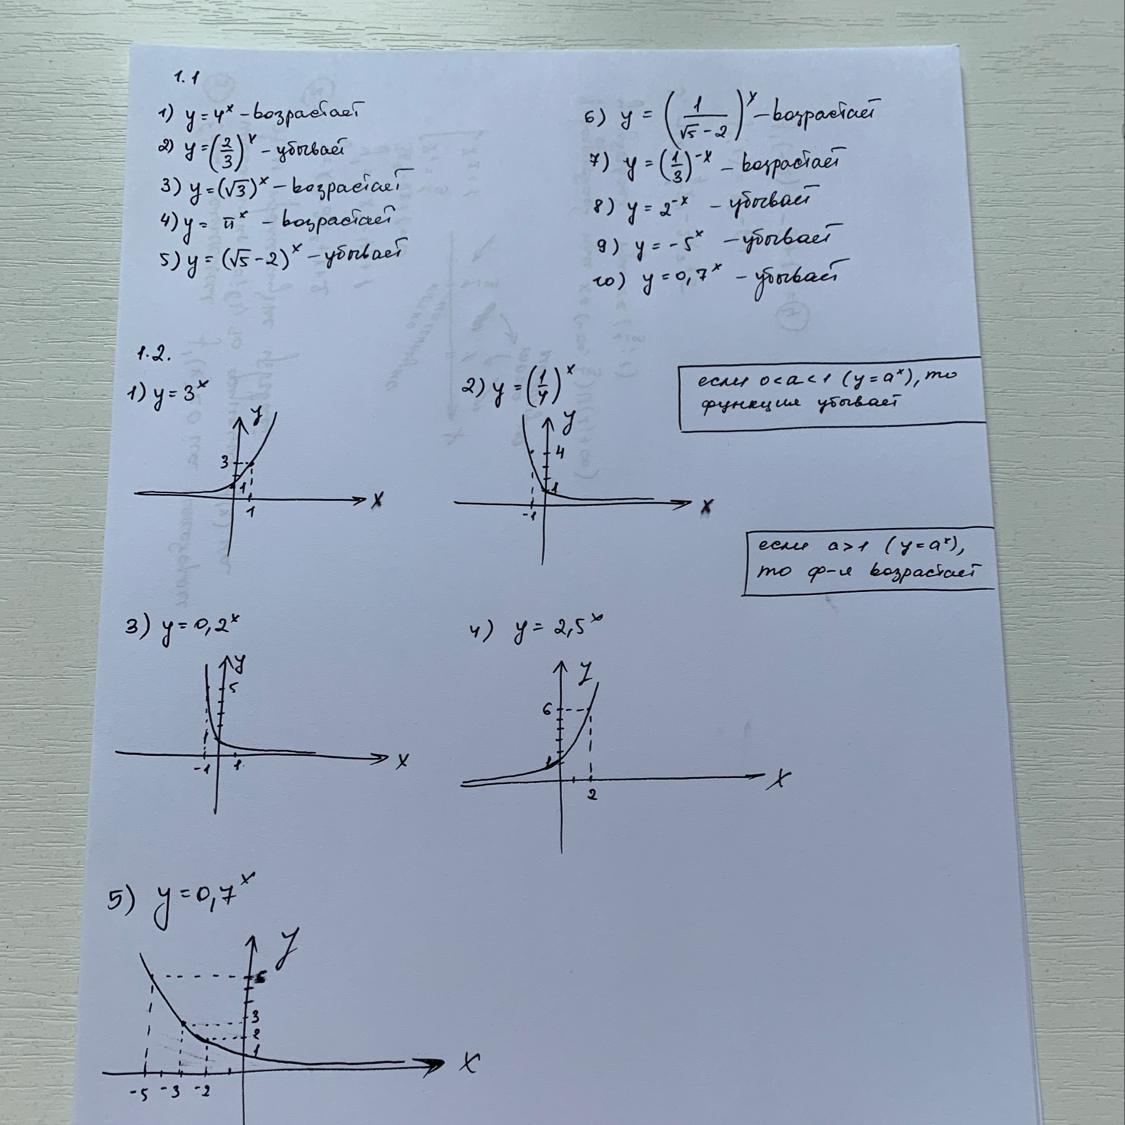 1.1
1) y = 4ˣ – возрастает
2) y = (2/3)ˣ – убывает
3) y = (√3)ˣ – возрастает
4) y = πˣ – возрастает
5) y = (√5 - 2)ˣ – убывает
6) y = (1/(√5 - 2))ˣ – возрастает
7) y = (1/3)⁻ˣ – возрастает
8) y = 2⁻ˣ – убывает
9) y = -5ˣ – убывает
10) y = 0,7ˣ – убывает
1.2.
1) y = 3ˣ
y
3
1
1
x
2) y = (1/4)ˣ
y
4
1
-1
x
если 0 < a < 1 (y = aˣ), то
функция убывает
если a > 1 (y = aˣ),
то ф-я возрастает
3) y = 0,2ˣ
y
5
1
-1 1
x
4) y = 2,5ˣ
y
6
1
2
x
5) y = 0,7ˣ
y
3
2
1
-5 -3 -2
x